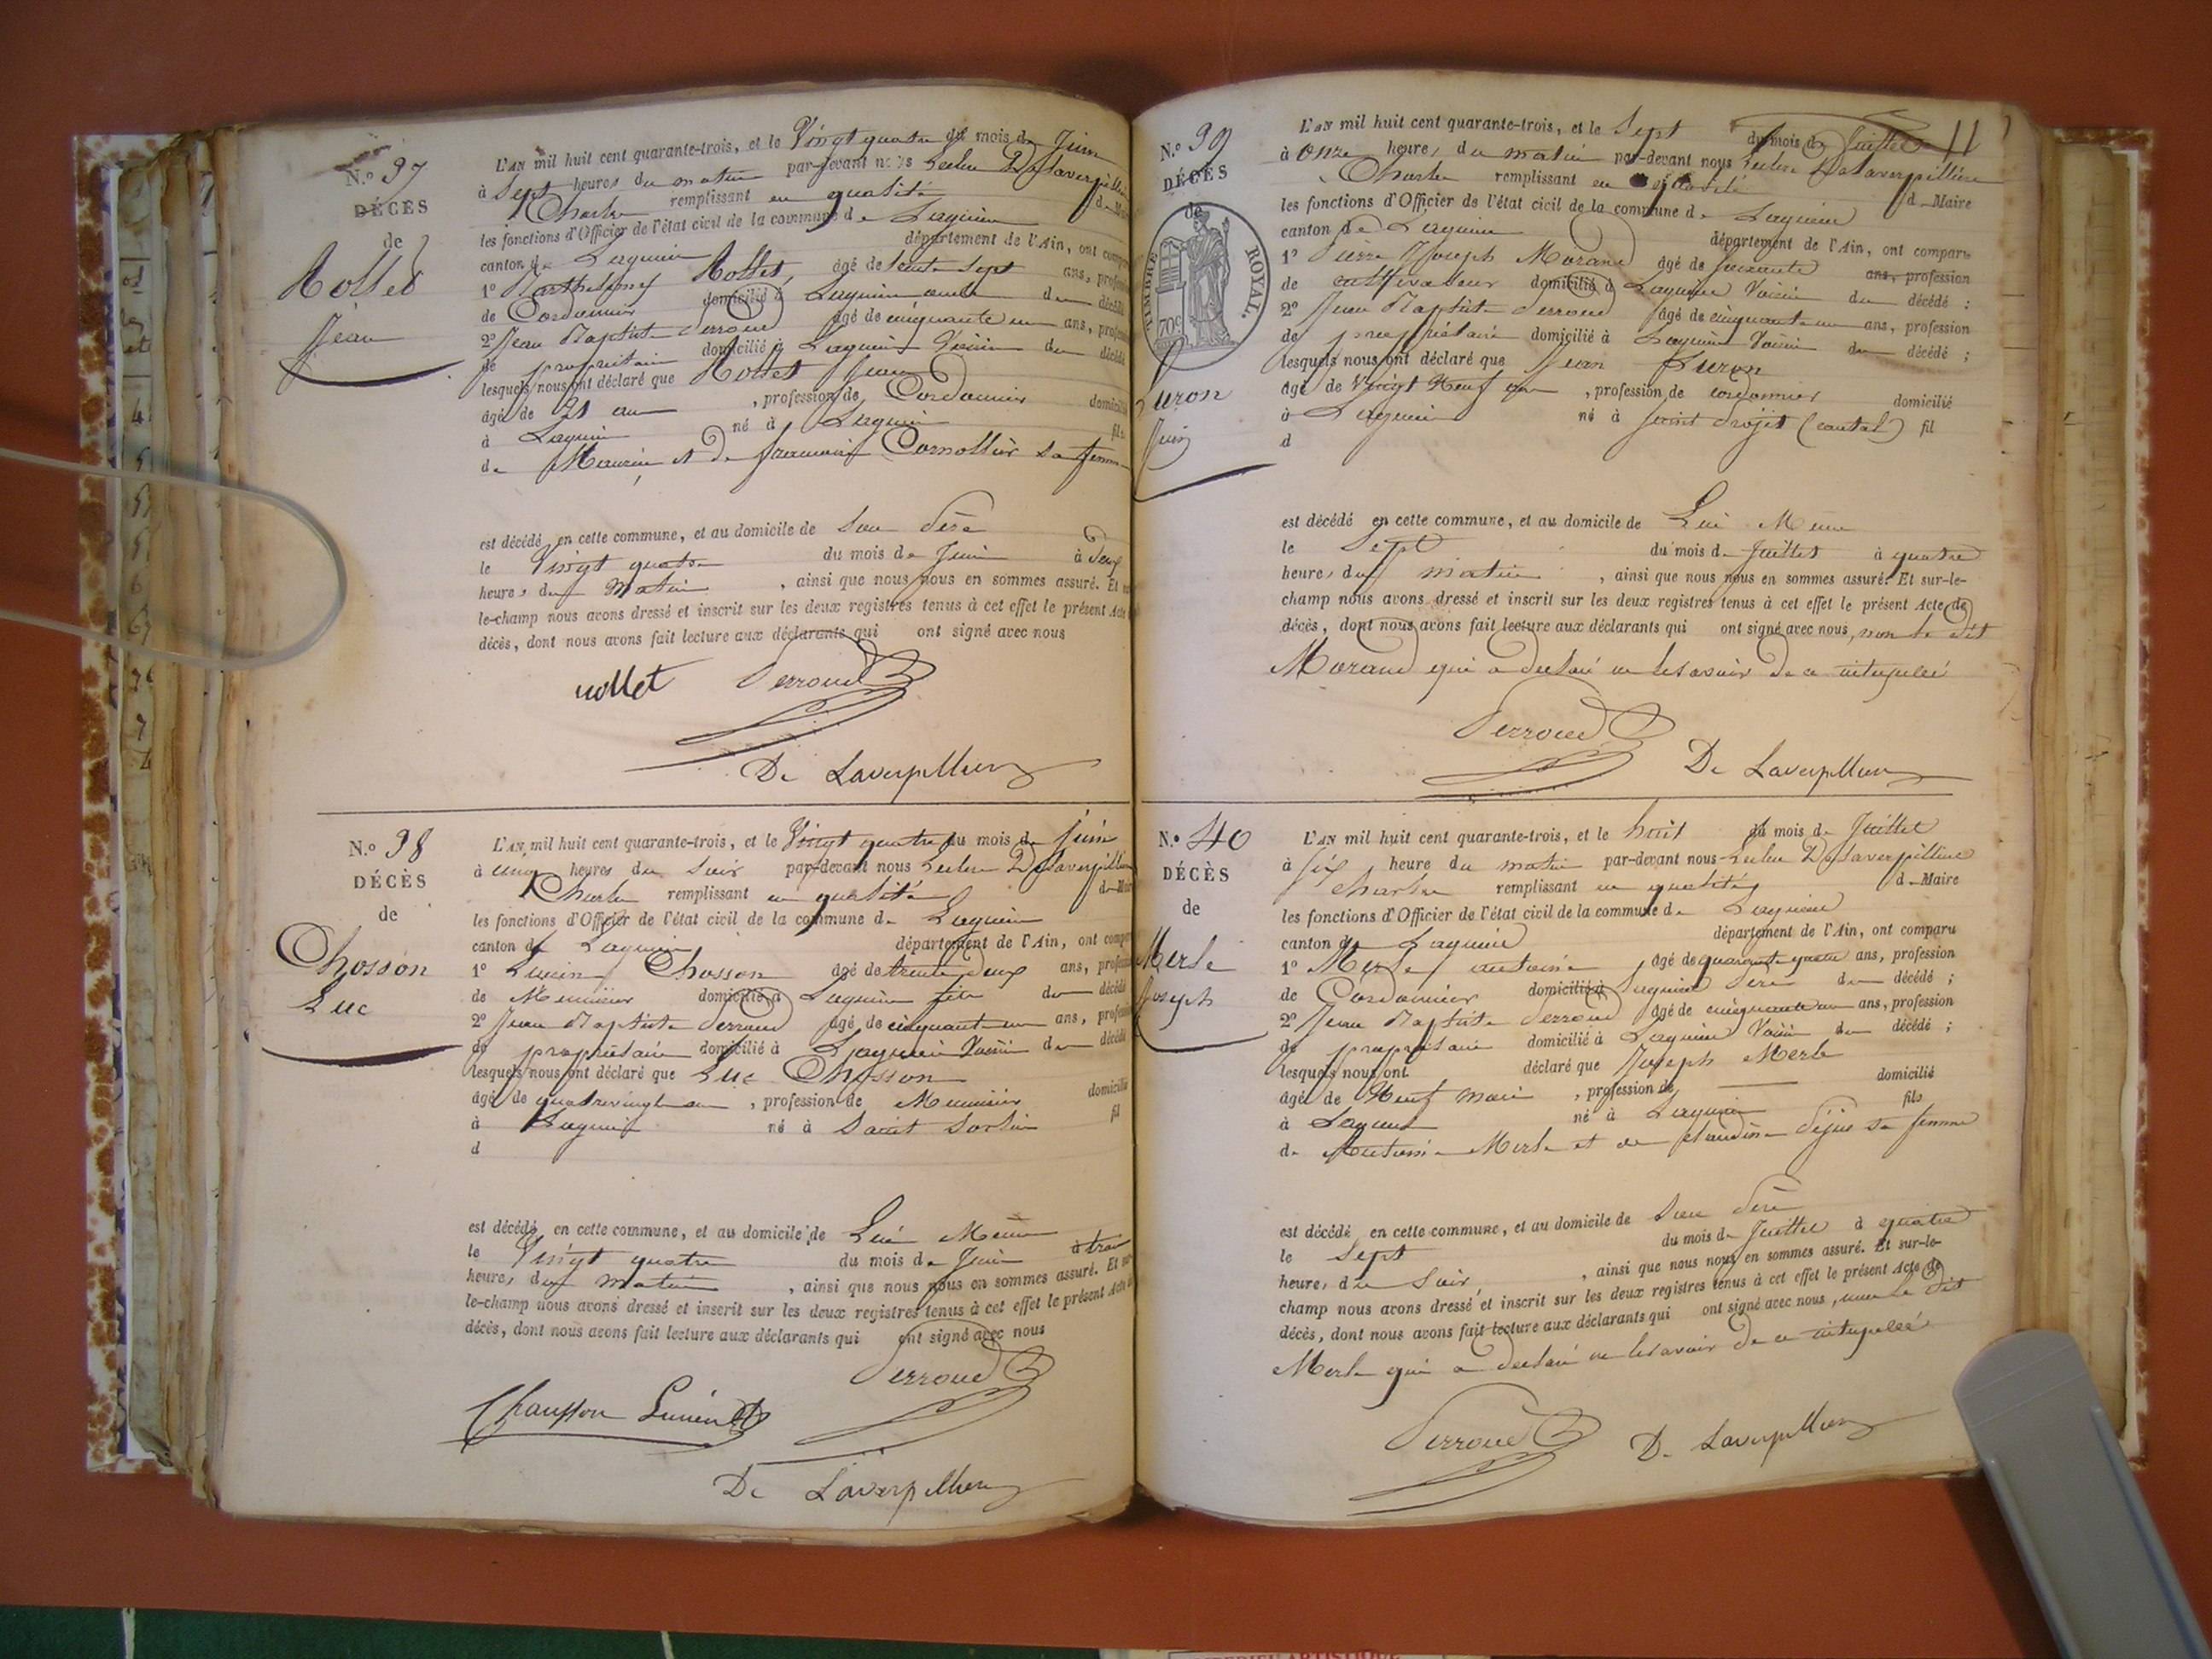 N.º 37
DÉCÈS
de
Rollet
Jean
L'AN mil huit cent quarante-trois, et le Vingt quatre du mois de Juin
à Sept heures du matin par-devant nous Leclerc Delaverpillière
Charles remplissant en qualité de Maire
les fonctions d'Officier de l'état civil de la commune de Lagnieu
canton de Lagnieu département de l'Ain, ont comparu
1º Barthelemy Rollet, âgé de trente sept ans, profession
de Cordonnier domicilié à Lagnieu oncle du décédé
2º Jean Baptiste Perroud âgé de cinquante un ans, profession
de propriétaire domicilié à Lagnieu Voisin du décédé
lesquels nous ont déclaré que Rollet Jean
âgé de 21 ans, profession de Cordonnier domicilié
à Lagnieu né à Lagnieu fils
de Maurice et de françoise Cornollier sa femme
est décédé en cette commune, et au domicile de Son Père
le Vingt quatre du mois de Juin à deux
heures du Matin, ainsi que nous nous en sommes assuré. Et sur
le-champ nous avons dressé et inscrit sur les deux registres tenus à cet effet le présent Acte
décès, dont nous avons fait lecture aux déclarants qui ont signé avec nous
rollet Perroud
De Laverpilliere
N.º 38
DÉCÈS
de
Chosson
Luc
L'AN mil huit cent quarante-trois, et le Vingt quatre du mois de Juin
à cinq heures du Soir par-devant nous Leclerc Delaverpillière
Charles remplissant en qualité de Maire
les fonctions d'Officier de l'état civil de la commune de Lagnieu
canton de Lagnieu département de l'Ain, ont comparu
1º Lucien Chosson âgé de trente deux ans, profession
de Menuisier domicilié à Lagnieu fils du décédé
2º Jean Baptiste Perroud âgé de cinquante un ans, profession
de propriétaire domicilié à Lagnieu Voisin du décédé
lesquels nous ont déclaré que Luc Chosson
âgé de quatrevingt ans, profession de Menuisier domicilié
à Lagnieu né à Saint Sorlin fil
d
est décédé en cette commune, et au domicile de Lui Même
le Vingt quatre du mois de Juin à trois
heures du matin, ainsi que nous nous en sommes assuré. Et sur
le-champ nous avons dressé et inscrit sur les deux registres tenus à cet effet le présent Acte de
décès, dont nous avons fait lecture aux déclarants qui ont signé avec nous
Perroud
Chausson Lucien
De Laverpilliere
11
N.º 39
DÉCÈS
de
TIMBRE ROYAL.
70c
Juron
Jean
L'AN mil huit cent quarante-trois, et le Sept du mois de Juillet
à Onze heures du matin par-devant nous Leclerc Delaverpillière
Charles remplissant en qualité de Maire
les fonctions d'Officier de l'état civil de la commune de Lagnieu
canton de Lagnieu département de l'Ain, ont comparu
1º Pierre Joseph Morand âgé de soixante ans, profession
de cultivateur domicilié à Lagnieu Voisin du décédé ;
2º Jean Baptiste Perroud âgé de cinquante un ans, profession
de propriétaire domicilié à Lagnieu Voisin du décédé ;
lesquels nous ont déclaré que Jean Juron
âgé de Vingt Neuf ans, profession de cordonnier domicilié
à Lagnieu né à Saint Projet (cantal) fil
d
est décédé en cette commune, et au domicile de Lui Même
le Sept du mois de Juillet à quatre
heures du matin, ainsi que nous nous en sommes assuré. Et sur-le-
champ nous avons dressé et inscrit sur les deux registres tenus à cet effet le présent Acte de
décès, dont nous avons fait lecture aux déclarants qui ont signé avec nous, non le dit
Morand qui a declaré ne le savoir de ce interpellé
Perroud De Laverpilliere
N.º 40
DÉCÈS
de
Merle
Joseph
L'AN mil huit cent quarante-trois, et le huit du mois de Juillet
à six heure du matin par-devant nous Leclerc Delaverpillière
Charles remplissant en qualité de Maire
les fonctions d'Officier de l'état civil de la commune de Lagnieu
canton de Lagnieu département de l'Ain, ont comparu
1º Merle antoine âgé de quarante quatre ans, profession
de Cordonnier domicilié à Lagnieu Père du décédé ;
2º Jean Baptiste Perroud âgé de cinquante un ans, profession
de propriétaire domicilié à Lagnieu Voisin du décédé ;
lesquels nous ont déclaré que Joseph Merle
âgé de Neuf mois, profession de domicilié
à Lagnieu né à Lagnieu fils
de Antoine Merle et de claudine sa femme
est décédé en cette commune, et au domicile de Son Père
le Sept du mois de Juillet à quatre
heures du Soir, ainsi que nous nous en sommes assuré. Et sur-le-
champ nous avons dressé et inscrit sur les deux registres tenus à cet effet le présent Acte de
décès, dont nous avons fait lecture aux déclarants qui ont signé avec nous, non le dit
Merle qui a declaré ne le savoir de ce interpellé
Perroud De Laverpilliere